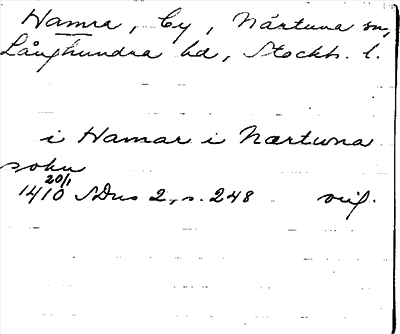 Hamra, by, Närtuna sn,
Långhundra hd, Stockh. l.
i Hamar i Nærtwna
sokn
1410 20/1 SDns 2, s. 248 orig.